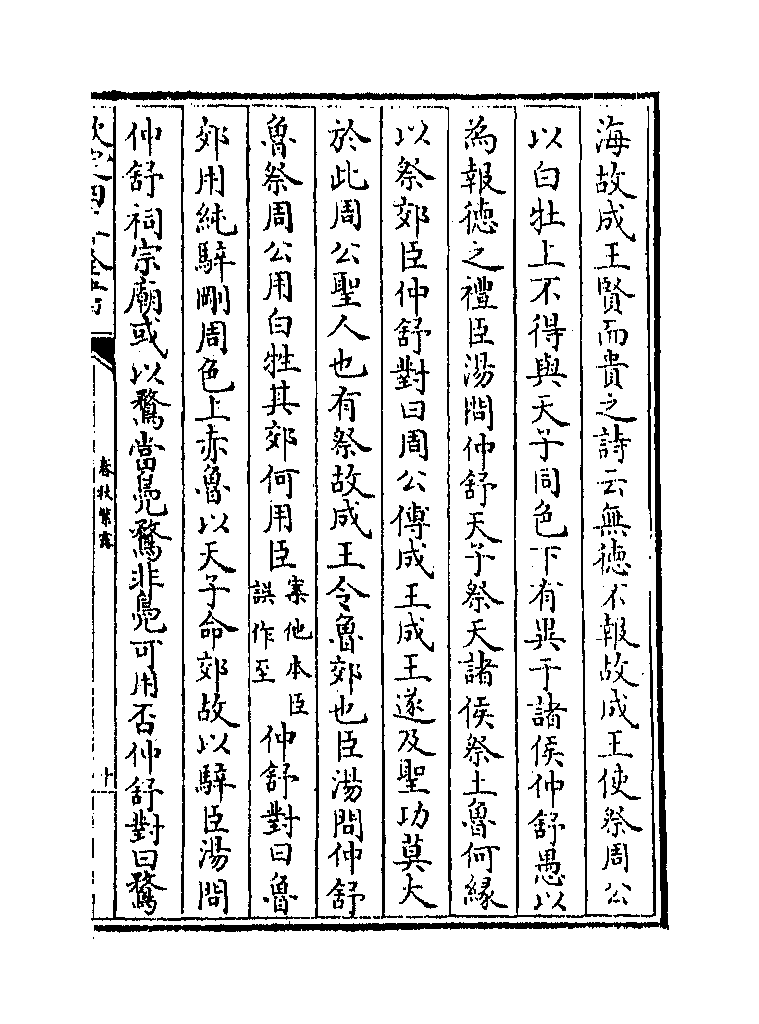 海故成王賢而貴之詩云無德不報故成王使祭周公
以白牡上不得與天子同色下有異于諸侯仲舒愚以
為報德之禮臣湯問仲舒天子祭天諸侯祭土魯何緣
以祭郊臣仲舒對曰周公傅成王成王遂及聖功莫大
於此周公聖人也有祭故成王令魯郊也臣湯問仲舒
魯祭周公用白牲其郊何用臣案他本臣誤作至仲舒對曰魯
郊用純騂剛周色上赤魯以天子命郊故以騂臣湯問
仲舒祠宗廟或以鶩當鳧鶩非鳧可用否仲舒對曰鶩
春秋繁露